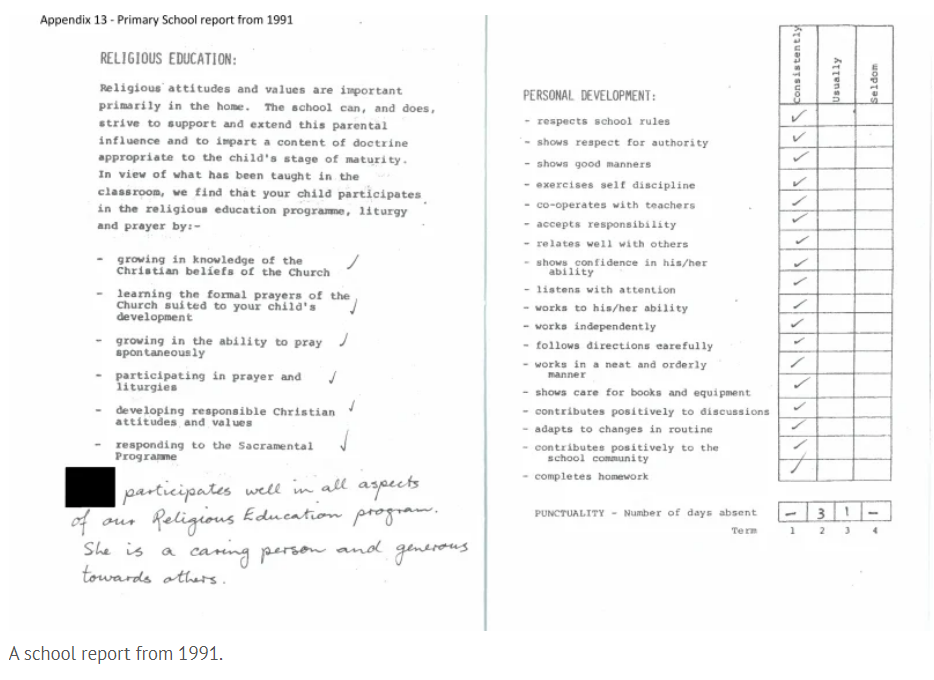 Appendix 13 - Primary School report from 1991
RELIGIOUS EDUCATION:
Religious attitudes and values are important
primarily in the home. The school can, and does,
strive to support and extend this parental
influence and to impart a content of doctrine
appropriate to the child's stage of maturity.
In view of what has been taught in the
classroom, we find that your child participates
in the religious education programme, liturgy
and prayer by:-
- growing in knowledge of the
Christian beliefs of the Church
- learning the formal prayers of the
Church suited to your child's
development
- growing in the ability to pray
spontaneously
- participating in prayer and
liturgies
- developing responsible Christian
attitudes and values
- responding to the Sacramental
Programme
participates well in all aspects
of our Religious Education program.
She is a caring person and generous
towards others.
Consistently
Usually
Seldom
PERSONAL DEVELOPMENT:
- respects school rules
- shows respect for authority
- shows good manners
- exercises self discipline
- co-operates with teachers
- accepts responsibility
- relates well with others
- shows confidence in his/her
ability
- listens with attention
- works to his/her ability
- works independently
- follows directions carefully
- works in a neat and orderly
manner
- shows care for books and equipment
- contributes positively to discussions
- adapts to changes in routine
- contributes positively to the
school community
- completes homework
PUNCTUALITY - Number of days absent
- 3 1 -
Term 1 2 3 4
A school report from 1991.